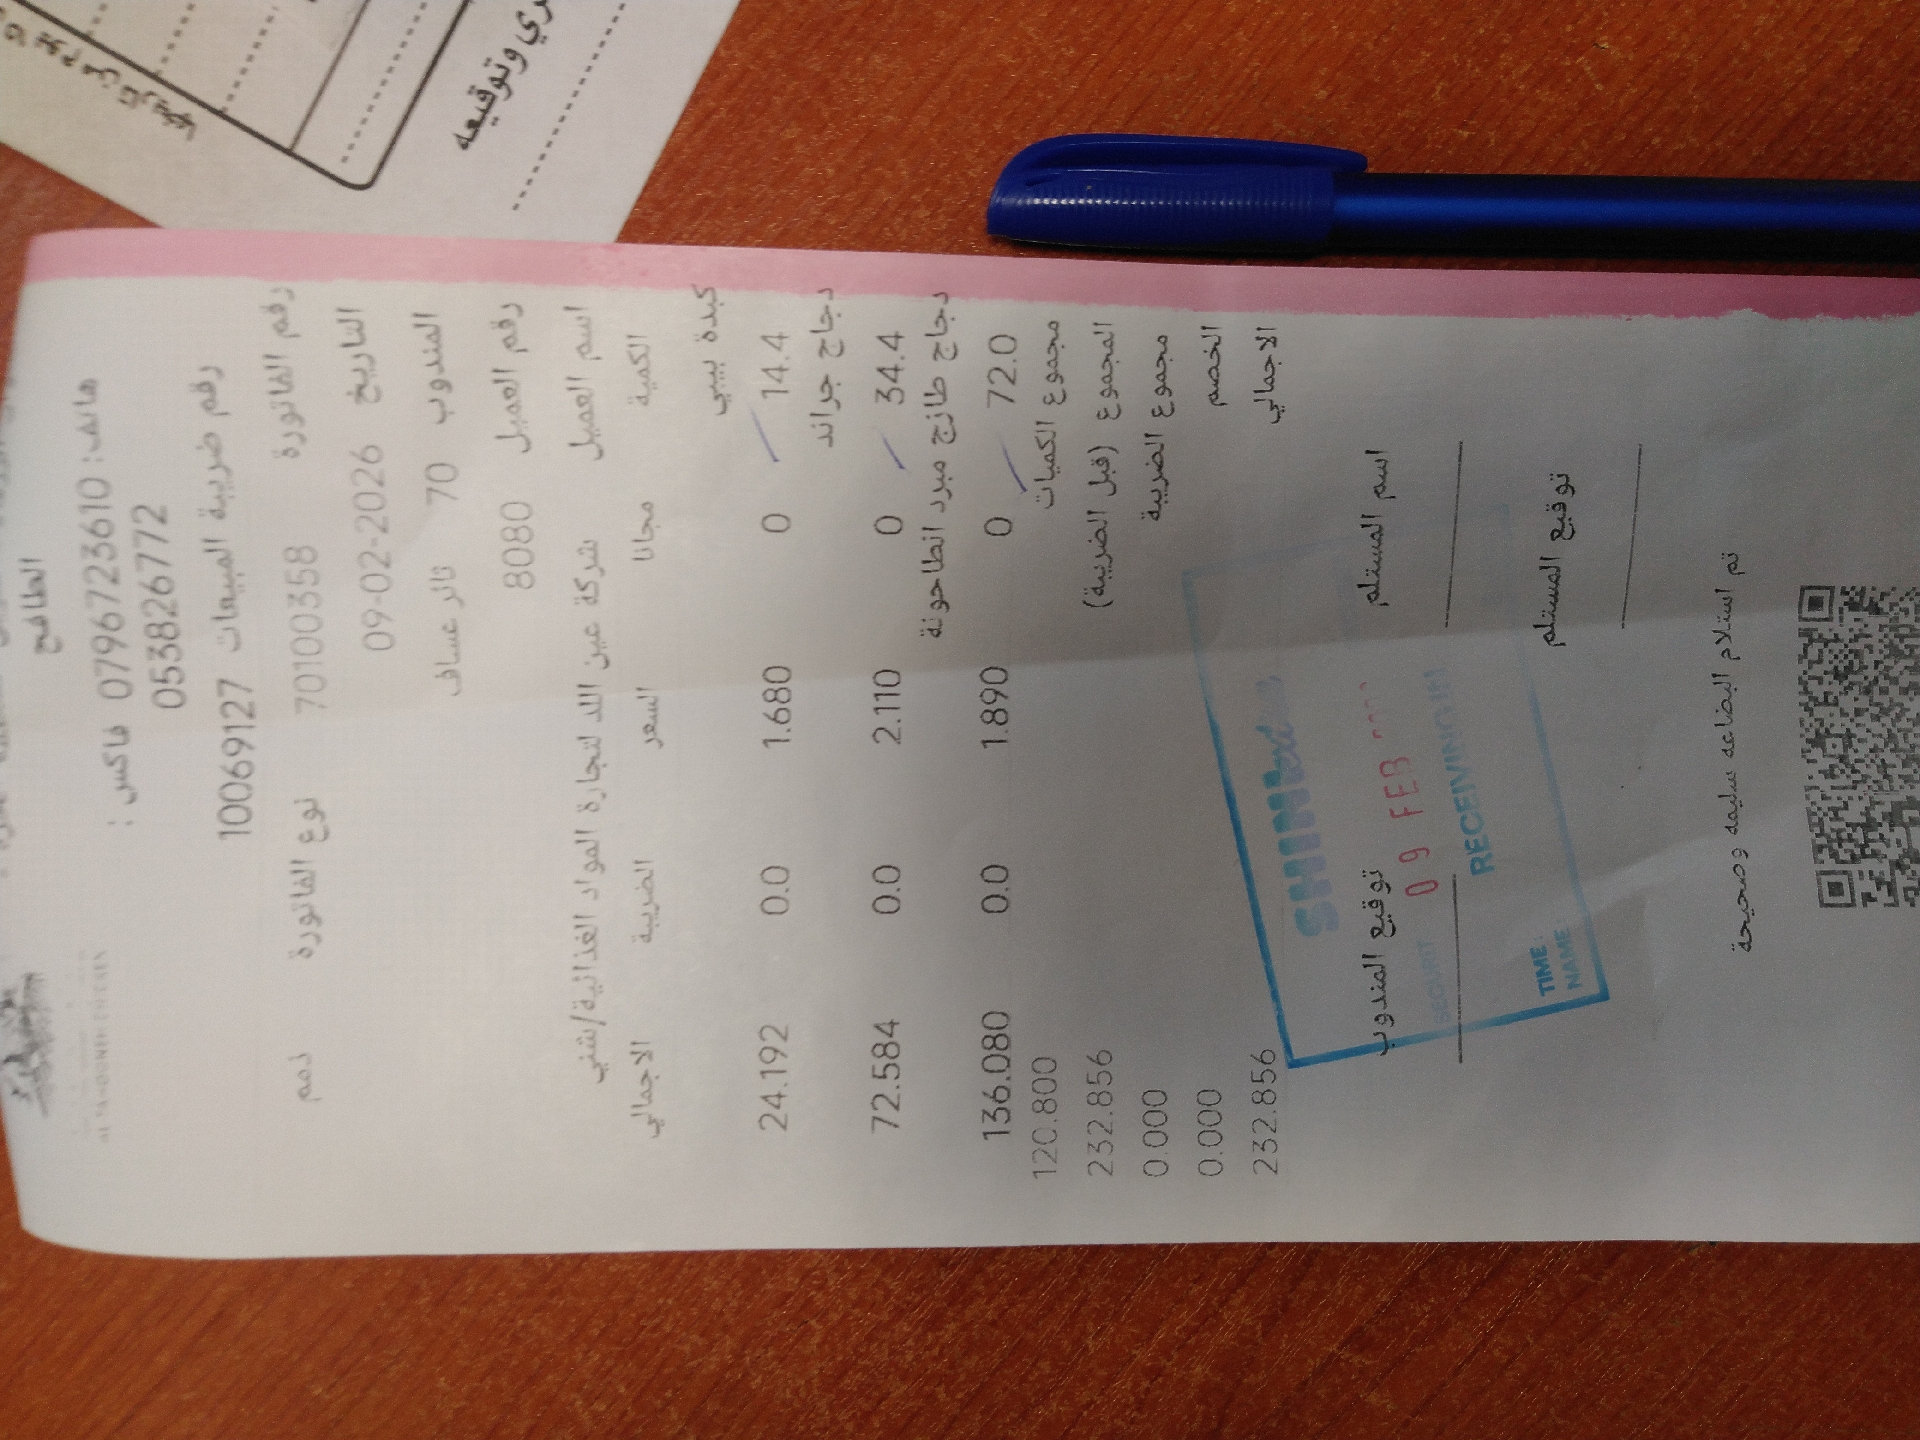 هاتف: 0796723610 فاكس :
053826772
رقم ضريبة المبيعات 10069127
رقم الفاتورة 70100358 نوع الفاتورة ذمم
التاريخ 09-02-2026
المندوب 70 ثائر عساف
رقم العميل 8080
اسم العميل شركة عين الد لتجارة المواد الغذائية/شني
الكمية مجانا السعر الضريبة الاجمالي
كبدة بيبي
14.4 0 1.680 0.0 24.192
دجاج جراند
34.4 0 2.110 0.0 72.584
دجاج طازج مبرد الطاحونة
72.0 0 1.890 0.0 136.080
مجموع الكميات 120.800
المجموع (قبل الضريبة) 232.856
مجموع الضريبة 0.000
الخصم 0.000
الاجمالي 232.856
اسم المستلم توقيع المندوب
09 FEB
RECEIVING
TIME:
NAME:
توقيع المستلم
تم استلام البضاعه سليمه وصحيحة
وتوقيعه